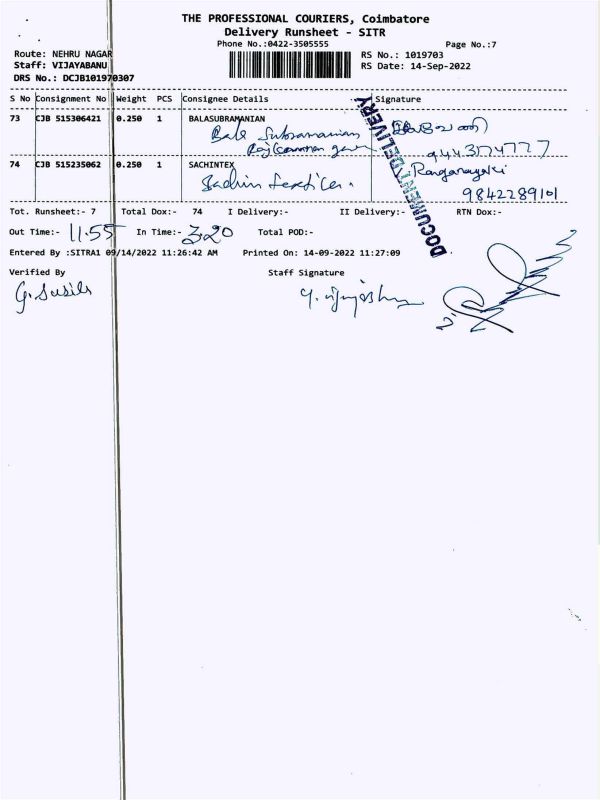 THE PROFESSIONAL COURIERS, Coimbatore
Delivery Runsheet - SITR
Phone No.:0422-3505555 Page No.:7
Route: NEHRU NAGAR RS No.: 1019703
Staff: VIJAYABANU RS Date: 14-Sep-2022
DRS No.: DCJB101970307
S No Consignment No Weight PCS Consignee Details Signature
73 CJB 515306421 0.250 1 BALASUBRAMANIAN
Bala Subramanian
9443174777
74 CJB 515235062 0.250 1 SACHINTEX Ranganayaki
Sachin textiles. 9842289101
DOCUMENT DELIVERY
Tot. Runsheet:- 7 Total Dox:- 74 I Delivery:- II Delivery:- RTN Dox:-
Out Time:- 11.55 In Time:- 3.20 Total POD:-
Entered By :SITRA1 09/14/2022 11:26:42 AM Printed On: 14-09-2022 11:27:09
Verified By Staff Signature
G. Susila